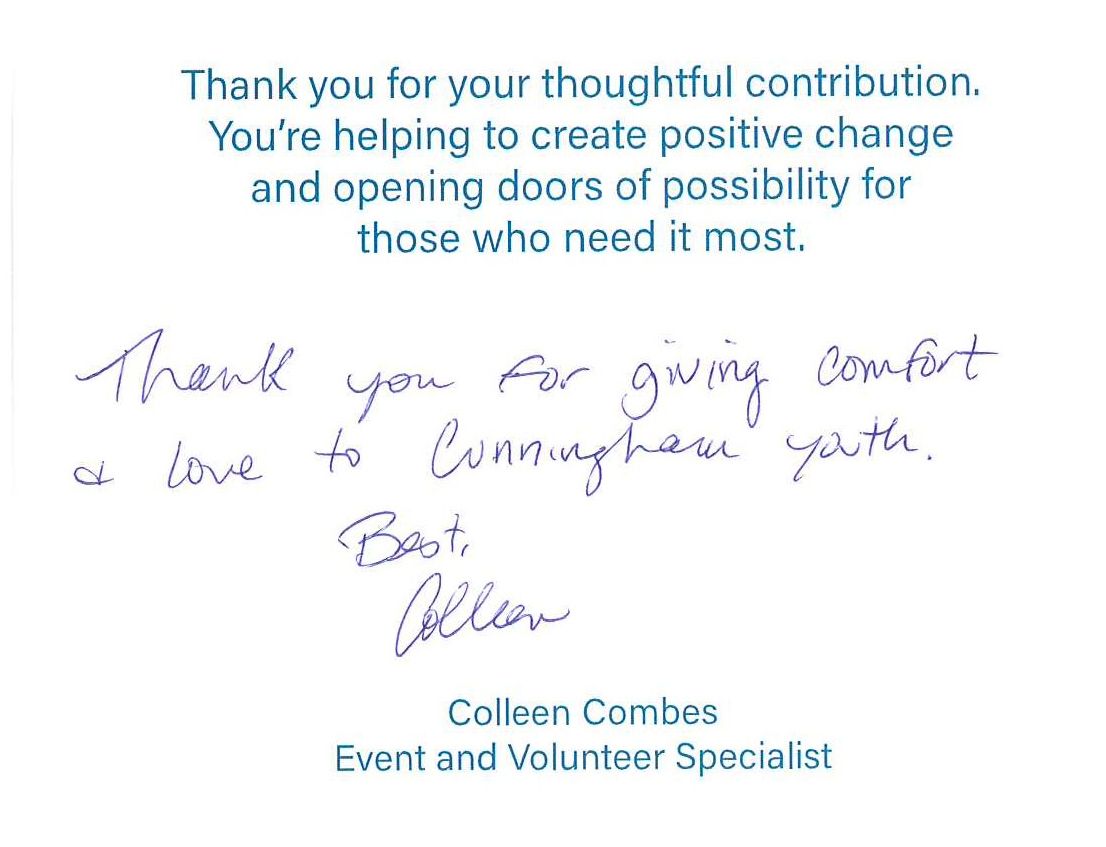 Thank you for your thoughtful contribution.
You're helping to create positive change
and opening doors of possibility for
those who need it most.
Thank you for giving comfort
& love to Cunningham youth.
Best,
Colleen
Colleen Combes
Event and Volunteer Specialist